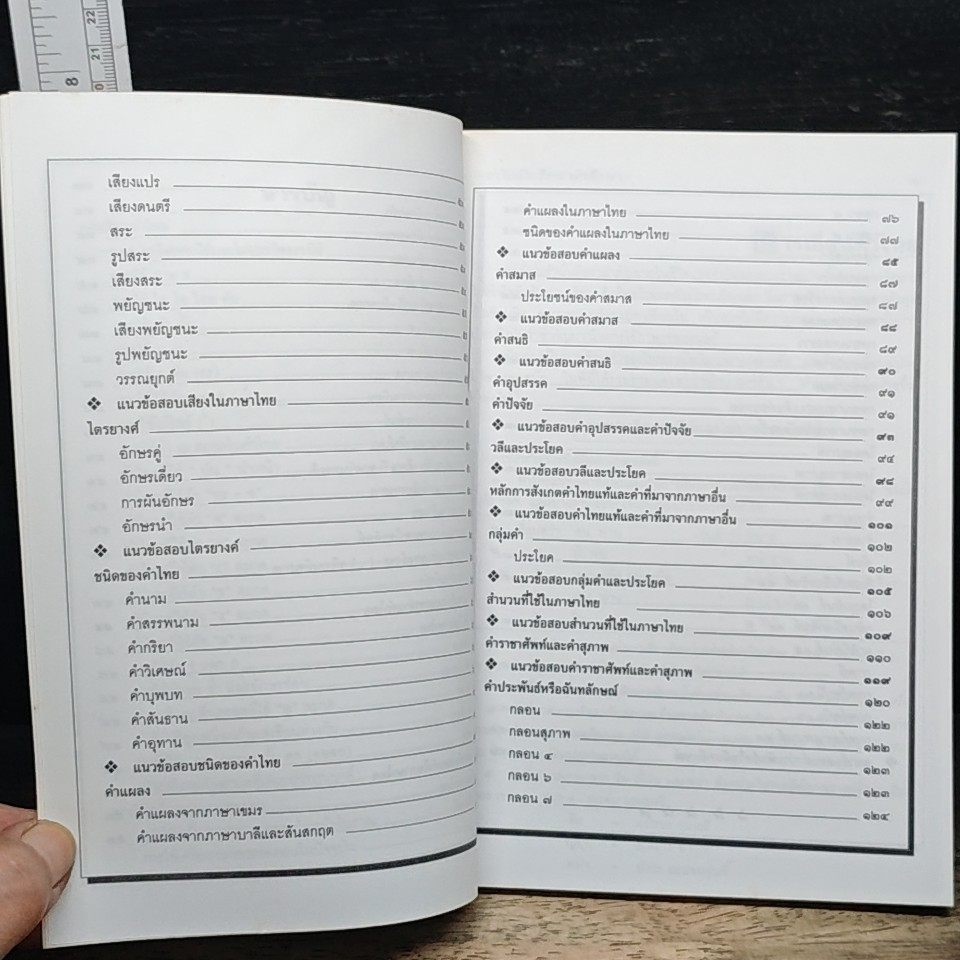 22
21
8
เสียงแปร
เสียงดนตรี
สระ
รูปสระ
เสียงสระ
พยัญชนะ
เสียงพยัญชนะ
รูปพยัญชนะ
วรรณยุกต์
❖ แนวข้อสอบเสียงในภาษาไทย
ไตรยางศ์
อักษรคู่
อักษรเดี่ยว
การผันอักษร
อักษรนำ
❖ แนวข้อสอบไตรยางค์
ชนิดของคำไทย
คำนาม
คำสรรพนาม
คำกริยา
คำวิเศษณ์
คำบุพบท
คำสันธาน
คำอุทาน
❖ แนวข้อสอบชนิดของคำไทย
คำแผลง
คำแผลงจากภาษาเขมร
คำแผลงจากภาษาบาลีและสันสกฤต
คำแผลงในภาษาไทย ๗๖
ชนิดของคำแผลงในภาษาไทย ๗๗
❖ แนวข้อสอบคำแผลง ๘๕
คำสมาส ๘๗
ประโยชน์ของคำสมาส ๘๗
❖ แนวข้อสอบคำสมาส ๘๘
คำสนธิ ๘๙
❖ แนวข้อสอบคำสนธิ ๙๐
คำอุปสรรค ๙๑
คำปัจจัย ๙๑
❖ แนวข้อสอบคำอุปสรรคและคำปัจจัย ๙๓
วลีและประโยค ๙๔
❖ แนวข้อสอบวลีและประโยค ๙๘
หลักการสังเกตคำไทยแท้และคำที่มาจากภาษาอื่น ๙๙
❖ แนวข้อสอบคำไทยแท้และคำที่มาจากภาษาอื่น ๑๐๑
กลุ่มคำ ๑๐๒
ประโยค ๑๐๒
❖ แนวข้อสอบกลุ่มคำและประโยค ๑๐๕
สำนวนที่ใช้ในภาษาไทย ๑๐๖
❖ แนวข้อสอบสำนวนที่ใช้ในภาษาไทย ๑๐๙
คำราชาศัพท์และคำสุภาพ ๑๑๐
❖ แนวข้อสอบคำราชาศัพท์และคำสุภาพ ๑๑๙
คำประพันธ์หรือฉันทลักษณ์ ๑๒๐
กลอน ๑๒๒
กลอนสุภาพ ๑๒๒
กลอน ๔ ๑๒๓
กลอน ๖ ๑๒๓
กลอน ๗ ๑๒๔